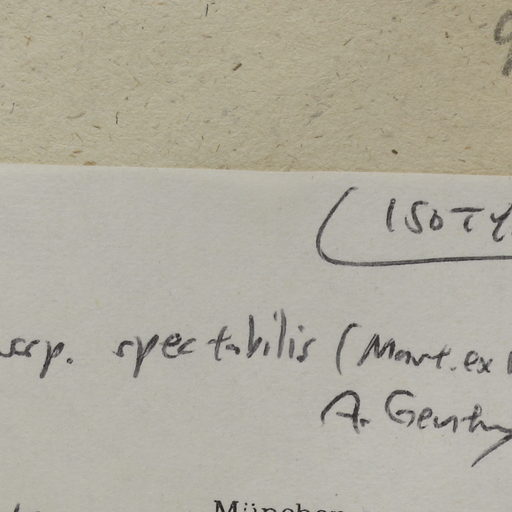 (ISOTY
ssp. spectabilis (Mart. ex
A. Gentry
München